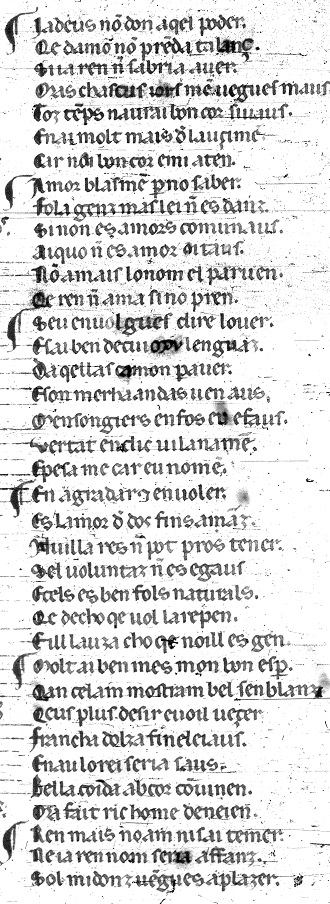 Ia deus nõ don aqel poder.
Qe damor nõ preda talanz.
Si ia ren ñ sabria auer.
Oras chascus iors me uegues maus
Toz tẽps naurai bon cor siuaus.
Enai molt mais ð lauzime
Car nai bon cor emi aten.
Amor blasmẽ p no saber.
Fola genz mas lei ñ es danz.
Si non es amors comunaus.
Aiquo ñ es amor aitaus.
Nõ a mais lo nom el paruen.
Qe ren ñ ama si no pren.
Seu en uolgues dire lo uer.
E sai ben de cui mou lenguaz.
Da qellas camon p auer.
E son merchaandas uen aus,
Mensongiers en fos eu efaus.
Vertat en dic uilanamẽ.
E pesa me car eu no mẽ.
En agradar ⁊ en uoler.
Es lamor ð dos fins amãz.
Nuilla res ñ pot pros tener.
Sel uoluntaz ñ es egaus
E cels es ben fols naturals.
Qe de cho qe uol la repen.
Eill lauza cho qe noill es gen.
Molt ai ben mes mon bon esp.
Qan celam mostram bel senblanz
Qeus plus desir e uoil uezer
Francha dolza fin e leiaus.
En au lo rei seria saus.
Bella coida ab cor couinen.
Ma fait ric home de neien.
Ren mais no am ni sai temer.
Ne ia ren nom seria affanz.
Sol midonz uegues a plazer.